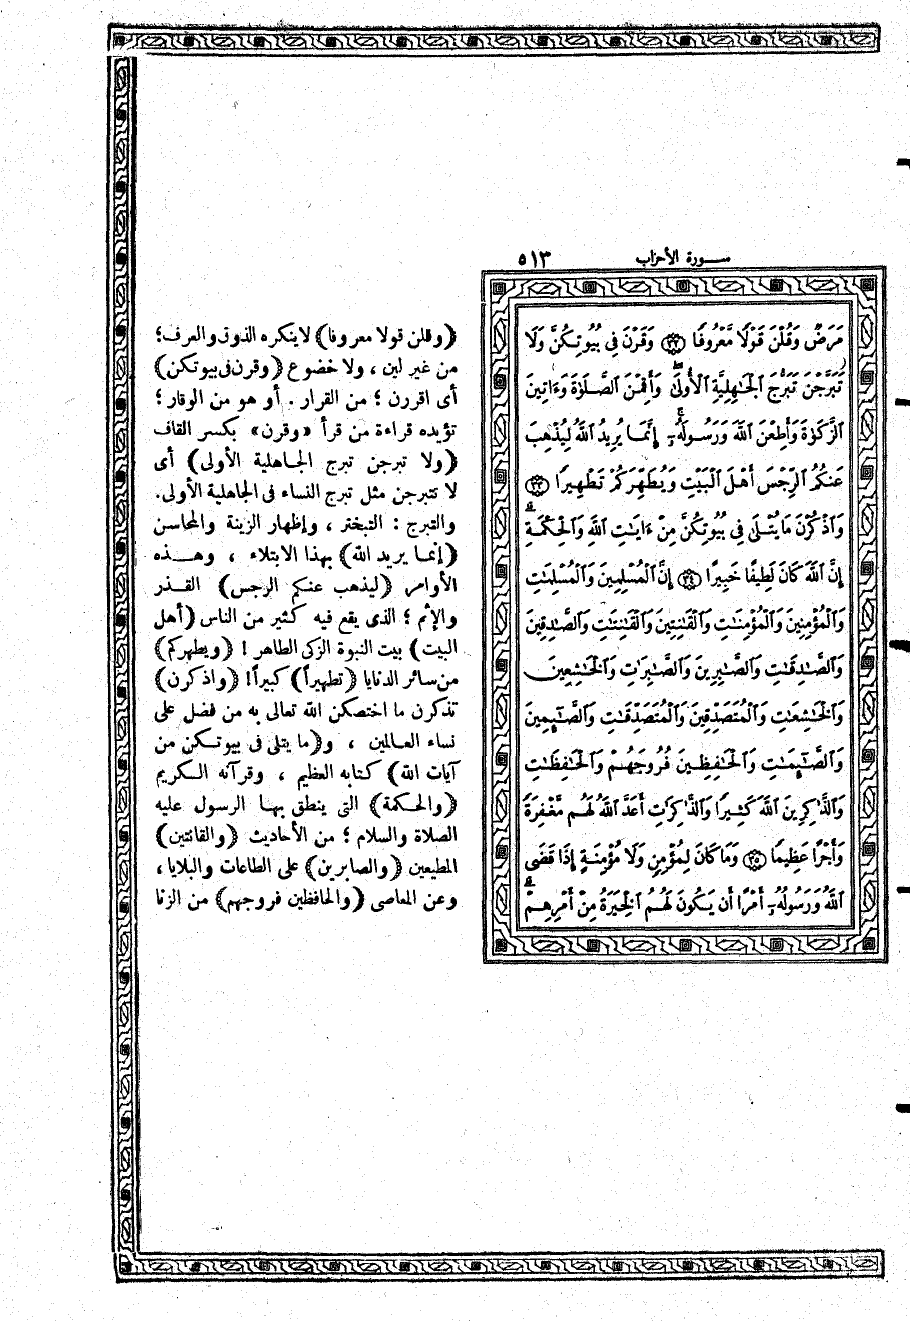 سورة الأحزاب ٥١٣
مَرَضٌ وَقُلْنَ قَوْلًا مَّعْرُوفًا ٣٢ وَقَرْنَ فِي بُيُوتِكُنَّ وَلَا
تَبَرَّجْنَ تَبَرُّجَ ٱلْجَٰهِلِيَّةِ ٱلْأُولَىٰ وَأَقِمْنَ ٱلصَّلَوٰةَ وَءَاتِينَ
ٱلزَّكَوٰةَ وَأَطِعْنَ ٱللَّهَ وَرَسُولَهُۥٓ إِنَّمَا يُرِيدُ ٱللَّهُ لِيُذْهِبَ
عَنكُمُ ٱلرِّجْسَ أَهْلَ ٱلْبَيْتِ وَيُطَهِّرَكُمْ تَطْهِيرًا ٣٣
وَٱذْكُرْنَ مَا يُتْلَىٰ فِي بُيُوتِكُنَّ مِنْ ءَايَٰتِ ٱللَّهِ وَٱلْحِكْمَةِ
إِنَّ ٱللَّهَ كَانَ لَطِيفًا خَبِيرًا ٣٤ إِنَّ ٱلْمُسْلِمِينَ وَٱلْمُسْلِمَٰتِ
وَٱلْمُؤْمِنِينَ وَٱلْمُؤْمِنَٰتِ وَٱلْقَٰنِتِينَ وَٱلْقَٰنِتَٰتِ وَٱلصَّٰدِقِينَ
وَٱلصَّٰدِقَٰتِ وَٱلصَّٰبِرِينَ وَٱلصَّٰبِرَٰتِ وَٱلْخَٰشِعِينَ
وَٱلْخَٰشِعَٰتِ وَٱلْمُتَصَدِّقِينَ وَٱلْمُتَصَدِّقَٰتِ وَٱلصَّٰٓئِمِينَ
وَٱلصَّٰٓئِمَٰتِ وَٱلْحَٰفِظِينَ فُرُوجَهُمْ وَٱلْحَٰفِظَٰتِ
وَٱلذَّٰكِرِينَ ٱللَّهَ كَثِيرًا وَٱلذَّٰكِرَٰتِ أَعَدَّ ٱللَّهُ لَهُم مَّغْفِرَةً
وَأَجْرًا عَظِيمًا ٣٥ وَمَا كَانَ لِمُؤْمِنٍ وَلَا مُؤْمِنَةٍ إِذَا قَضَى
ٱللَّهُ وَرَسُولُهُۥٓ أَمْرًا أَن يَكُونَ لَهُمُ ٱلْخِيَرَةُ مِنْ أَمْرِهِمْ
(وقلن قولا معروفا) لا ينكره الذوق والعرف؛
من غير لين ، ولا خضوع (وقرن فى بيوتكن)
أى اقررن ؛ من القرار . أو هو من الوقار ؛
تؤيده قراءة من قرأ «وقرن» بكسر القاف
(ولا تبرجن تبرج الجاهلية الأولى) أى
لا تتبرجن مثل تبرج النساء فى الجاهلية الأولى.
والتبرج : التبختر ، وإظهار الزينة والمحاسن
(إنما يريد الله) بهذا الابتلاء ، وهـذه
الأوامر (ليذهب عنكم الرجس) القـذر
والإثم ؛ الذى يقع فيه كثير من الناس (أهل
البيت) بيت النبوة الزكى الطاهر ! (ويطهركم)
من سائر الدنايا (تطهيراً) كبيراً! (واذكرن)
تذكرن ما اختصكن الله تعالى به من فضل على
نساء العالمين ، و(ما يتلى فى بيوتكن من
آيات الله) كتابه العظيم ، وقرآنه الكريم
(والحكمة) التى ينطق بها الرسول عليه
الصلاة والسلام ؛ من الأحاديث (والقانتين)
المطيعين (والصابرين) على الطاعات والبلايا ،
وعن المعاصى (والحافظين فروجهم) من الزنا